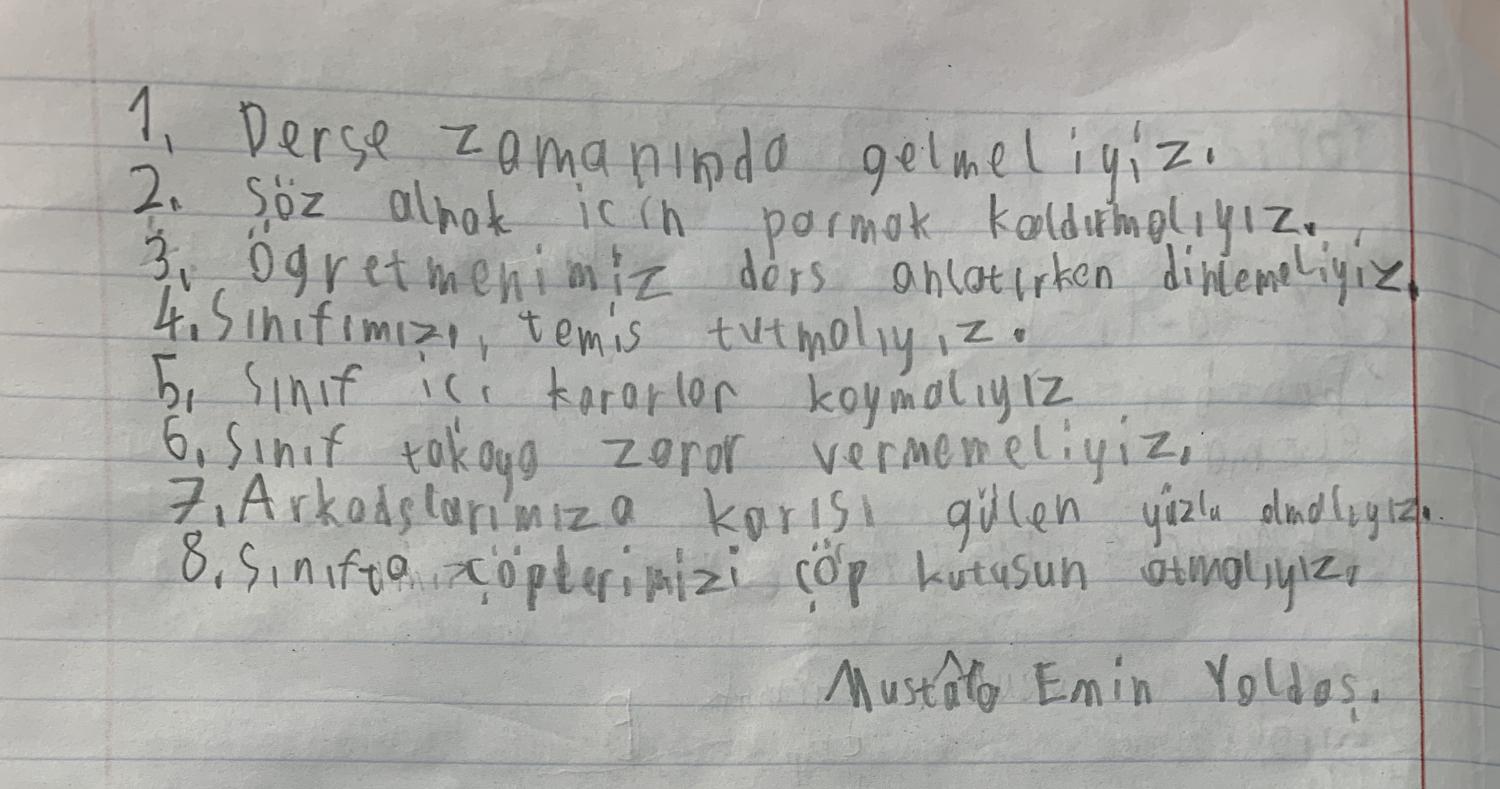 1. Derse zamanında gelmeliyiz.
2. Söz almak icin parmak kaldırmalıyız.
3. Ögretmenimiz ders anlatırken dinlemeliyiz.
4. Sınıfımızı, temis tutmalıyız.
5. Sınıf ici kararlar koymalıyız
6. Sınıf takaya zarar vermemeliyiz.
7. Arkadşlarimıza karısı gülen yüzlu olmalıyız.
8. Sınıfta çöplerimizi çöp kutusun atmalıyız.
Mustâfa Emin Yoldaş.